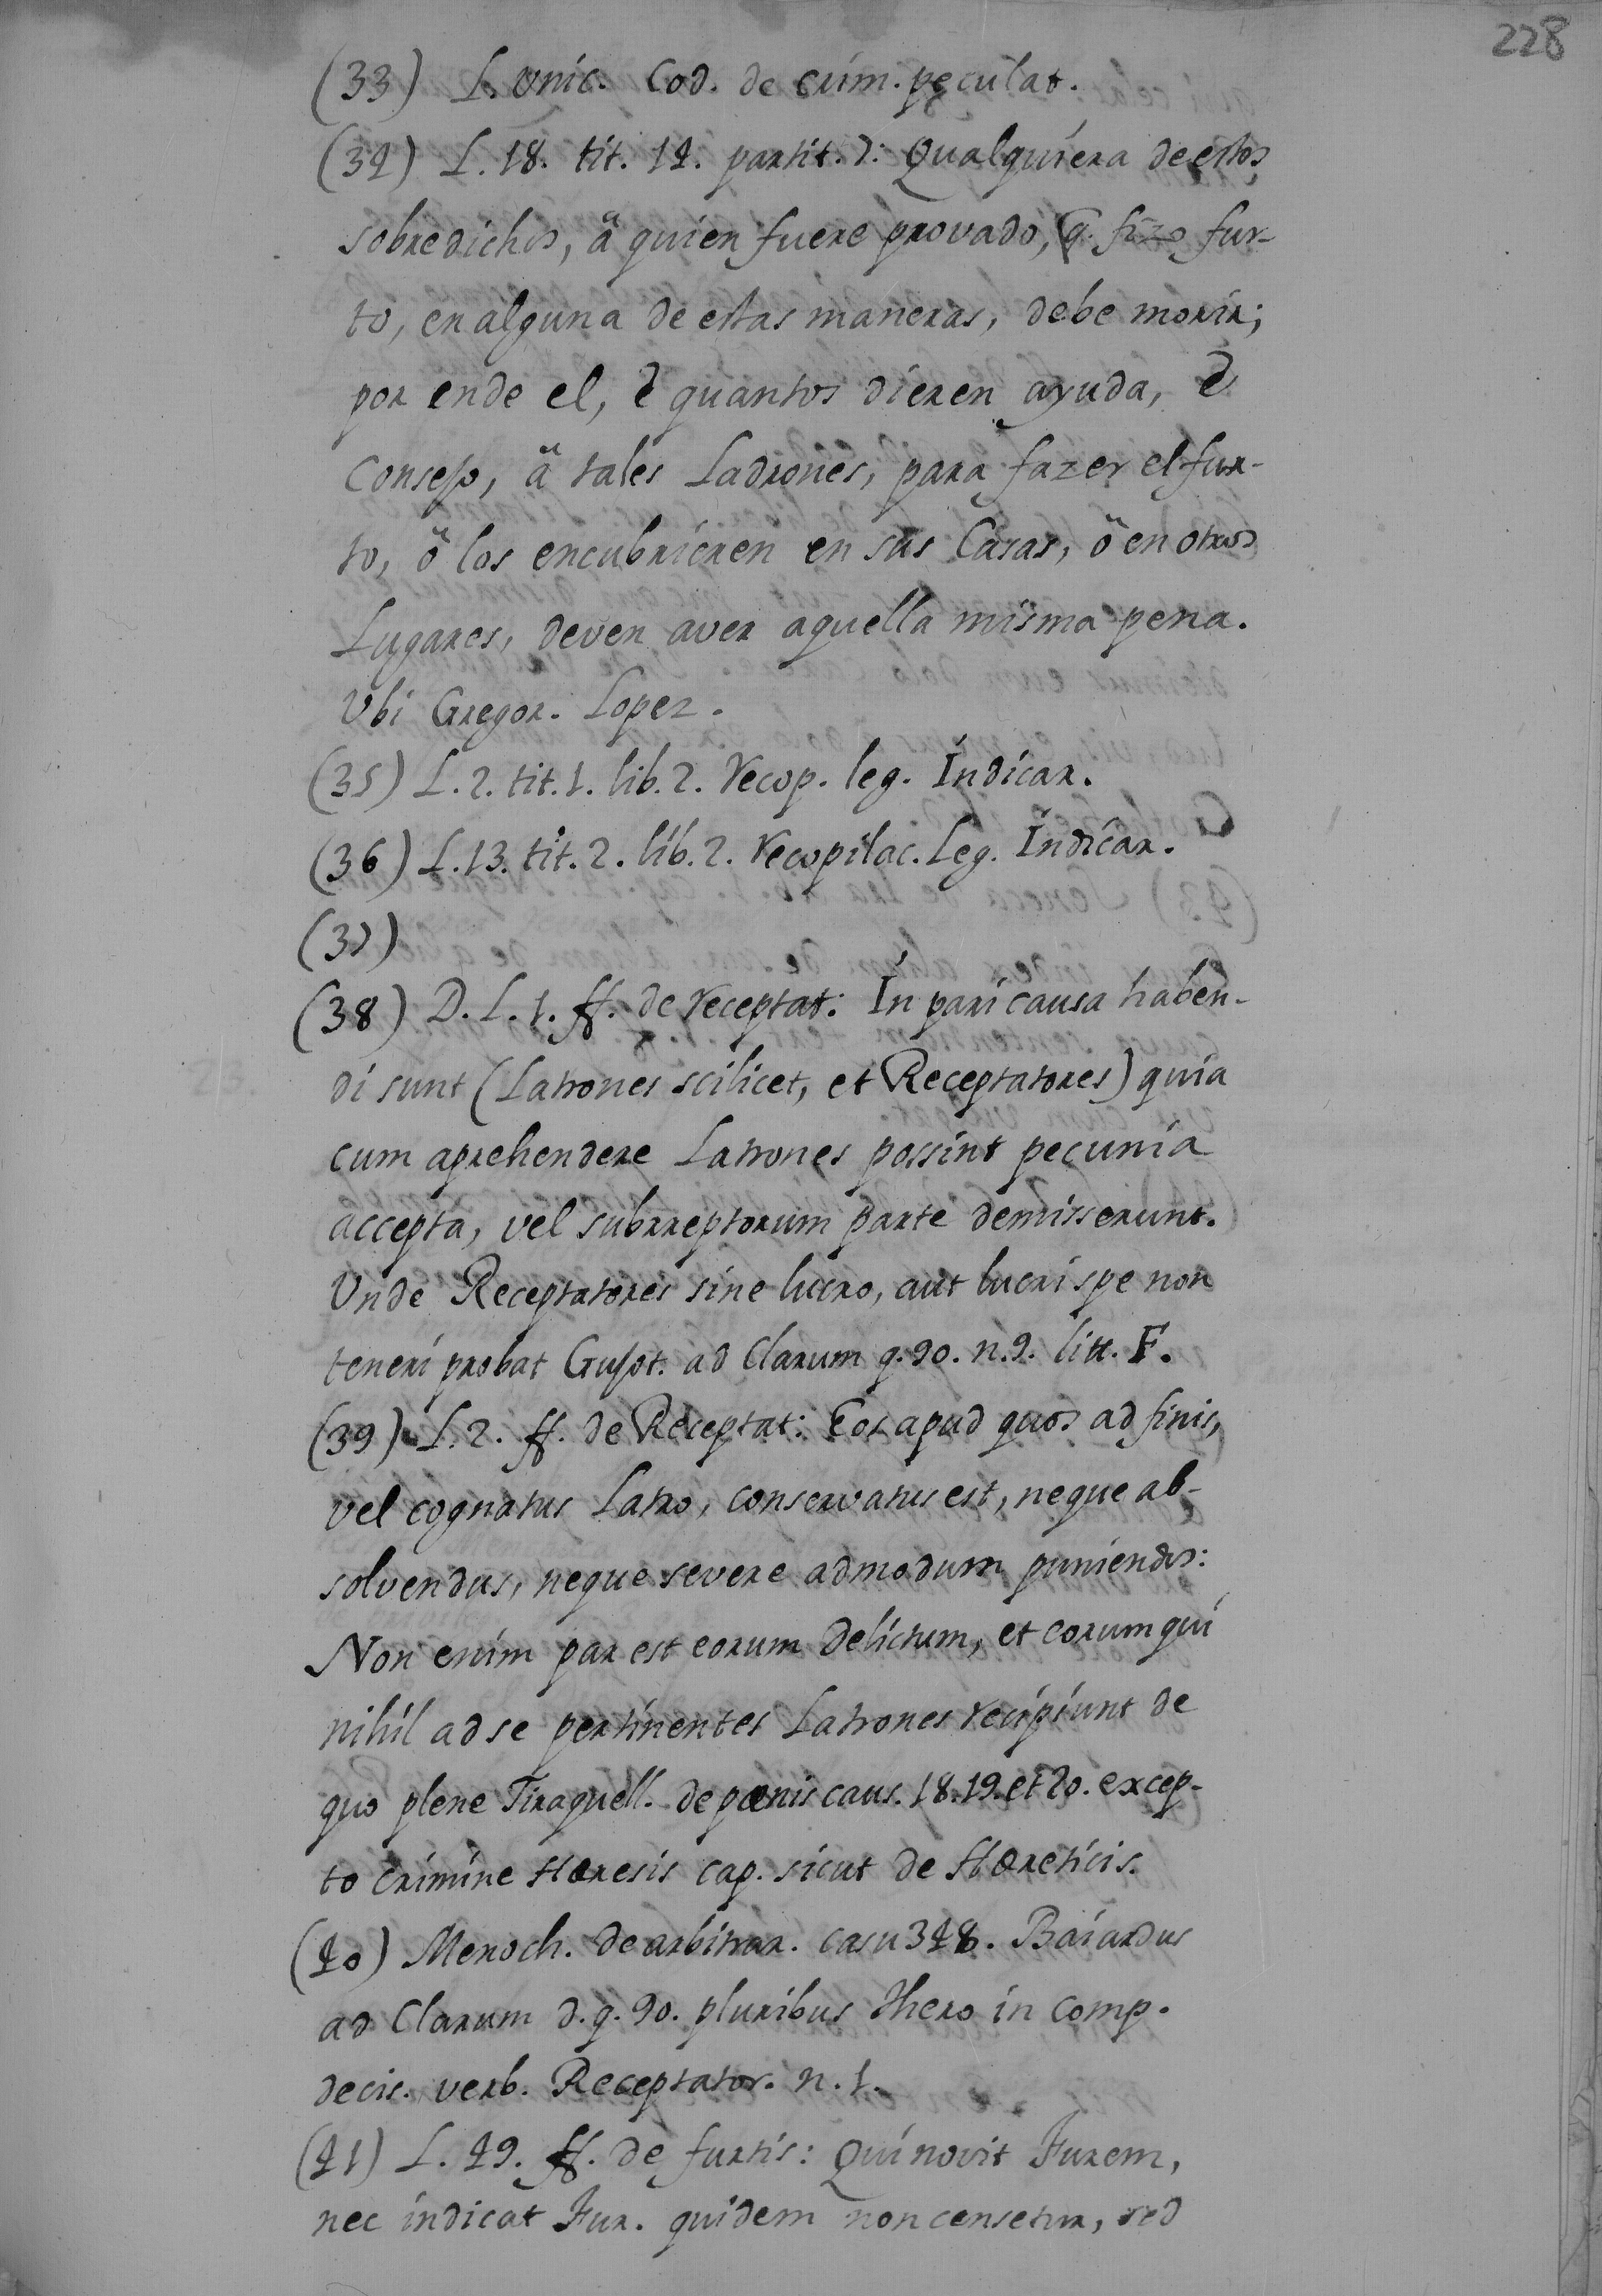 228
(33) L. Unic. Cod. de crim. peculat.
(34) L. 18. tit. 14. partit. 7: Qualquiera de estos
sobredichos, â quien fuere provado, q. fizo fur-
to, en alguna de estas maneras, debe morir;
por ende el, è quantos dieren ayuda, è
Consejo, â tales Ladrones, para fazer el fur-
to, ô los encubrieren en sus Casas, ô en otros
Lugares, deven aver aquella misma pena.
Ubi Gregor. Lopez.
(35) L. 2. tit. 1. lib. 2. recop. leg. Indicar.
(36) L. 13. tit. 2. lib. 2. recopilac. Leg. Indicar.
(37)
(38) D. L. 1. ff. de receptat: In pari causa haben-
di sunt (Latrones scilicet, et Receptatores) quia
cum aprehendere Latrones possint pecunia
accepta, vel subrreptorum parte demisserunt.
Unde Receptatores sine lucro, aut lucri spe non
teneri probat Gujot. ad Clarum q. 90. n. 9. litt. F.
(39) L. 2. ff. de Receptat: Eos apud quos ad finis,
vel cognatus Latro, conservatus est, neque ab-
solvendus, neque severe admodum puniendos:
Non enim par est eorum delictum, et eorum qui
nihil ad se pertinentes Latrones recipiunt de
quo plene Tiraquell. de pœnis caus. 18. 19. et 20. excep-
to crimine Hæresis cap. sicut de Hæreticis.
(40) Menoch. de arbitrar. casu 348. Baiardus
ad Clarum d. q. 90. pluribus Thero in comp.
decis. verb. Receptator. n. 1.
(41) L. 49. ff. de furtis: Qui novit Furem,
nec indicat Fur. quidem non censetur, sed